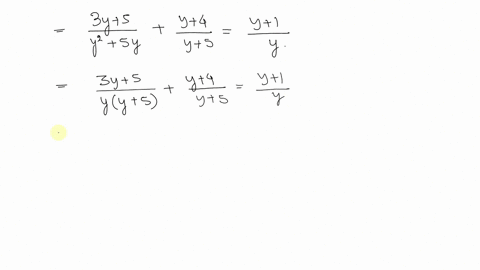 = (3y+5)/(y²+5y) + (y+4)/(y+5) = (y+1)/y.
= (3y+5)/(y(y+5)) + (y+4)/(y+5) = (y+1)/y